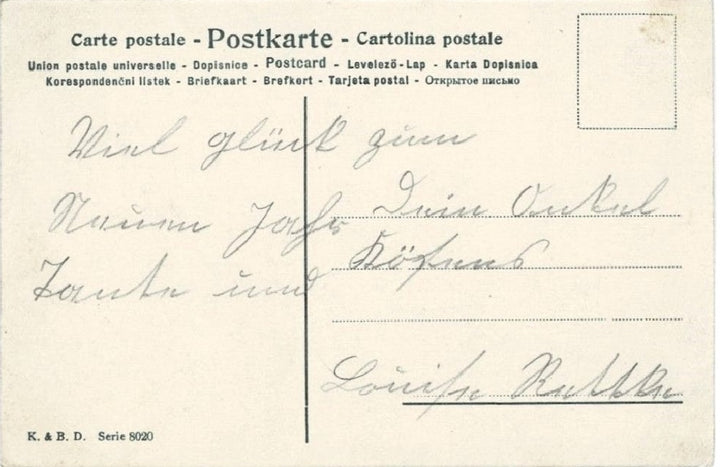 Carte postale - Postkarte - Cartolina postale
Union postale universelle - Dopisnice - Postcard - Levelező-Lap - Karta Dopisnica
Korespondenčni listek - Briefkaart - Brefkort - Tarjeta postal - Открытое письмо
Viel glück zum
Neuen Jahr
Tante und
Dein Onkel
Louise
K. & B. D. Serie 8020